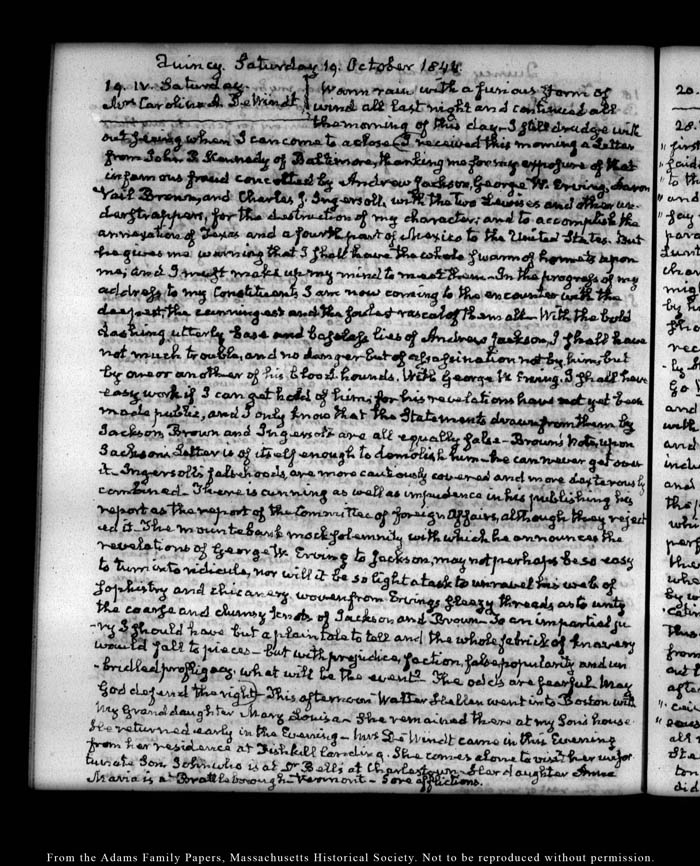 Quincy. Saturday 19. October 1844.
19. IV. Saturday.
Mrs Caroline A. DeWindt
Warm rain with a furious storm of
wind all last night and continued all
the morning of this day. I still drudge with
out seeing when I can come to a close. I received this morning a Letter
from John P. Kennedy of Baltimore, thanking me for my exposure of that
infamous fraud concocted by Andrew Jackson, George W. Erving, Aaron
Vail Brown, and Charles J. Ingersoll, with the two Lewises and other un-
derstrappers, for the destruction of my character; and to accomplish the
annexation of Texas and a fourth part of Mexico to the United States. But
he gives me warning that I shall have the whole swarm of hornets upon
me; and I must make up my mind to meet them. In the progress of my
address to my Constituents I am now coming to the encounter with the
deepest, the cunningest and the foulest rascal of them all. With the bold
dashing utterly base and baseless lies of Andrew Jackson, I shall have
not much trouble, and no danger but of assassination not by him, but
by one or another of his blood hounds. With George W. Erving, I shall have
easy work if I can get hold of him; for his revelations have not yet been
made public, and I only know that the Statements drawn from them by
Jackson, Brown and Ingersoll are all equally false. Brown's Note upon
Jackson's Letter is of itself enough to demolish him—he can never get over
it. Ingersoll's falsehoods, are more cautiously covered and more dexterously
combined. There is cunning as well as impudence in his publishing his
report as the report of the Committee of foreign Affairs, although they reject
ed it. The mountebank mock solemnity with which he announces the
revelations of George W. Erving to Jackson, may not perhaps be so easy
to turn into ridicule, nor will it be so light a task to unravel his web of
sophistry and chicanery woven from Ervings sleazy threads as to unty
the coarse and clumsy knots of Jackson and Brown. To an impartial ju
-ry I should have but a plain tale to tell and the whole fabrick of knavery
would fall to pieces—but with prejudice, faction, false popularity and un
-bridled profligacy, what will be the event? The odds are fearful. May
God defend the right. This afternoon Walter Hellen went into Boston with
my Grand daughter Mary Louisa. She remained there at my Son's house.
He returned early in the Evening. Mrs De Windt came in this Evening
from her residence at Fishkill landing. She comes alone to visit her unfor
tunate Son John who is at Dr Bells at Charlestown. Her daughter
Maria is at Brattleborough Vermont. Sore afflictions.
20.
From the Adams Family Papers, Massachusetts Historical Society. Not to be reproduced without permission.